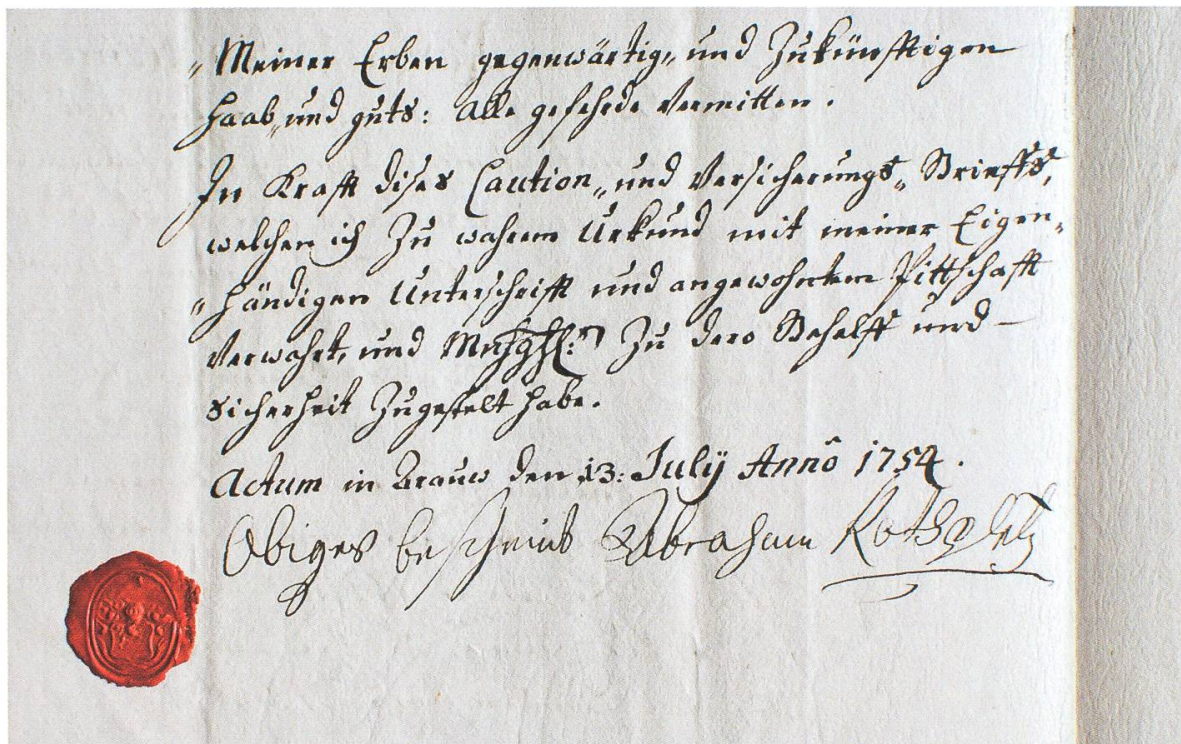 „Meiner Erben gegenwärtig„ und Zukünfftigen
Haab„ und guts: Alle gefehrde Vermitten.
In Krafft dises Caution„ und Versicherungs„ Brieffs,
welchen ich Zu wahrem Urkund mit meiner Eigen„
„händigen Unterschrifft und angewohntem Pittschafft
Verwahrt, und Zu dero Behelff und
Sicherheit Zugestelt habe.
Actum in den 13: Julÿ Annô 1754.
Obiges bescheint Abraham Rothpletz